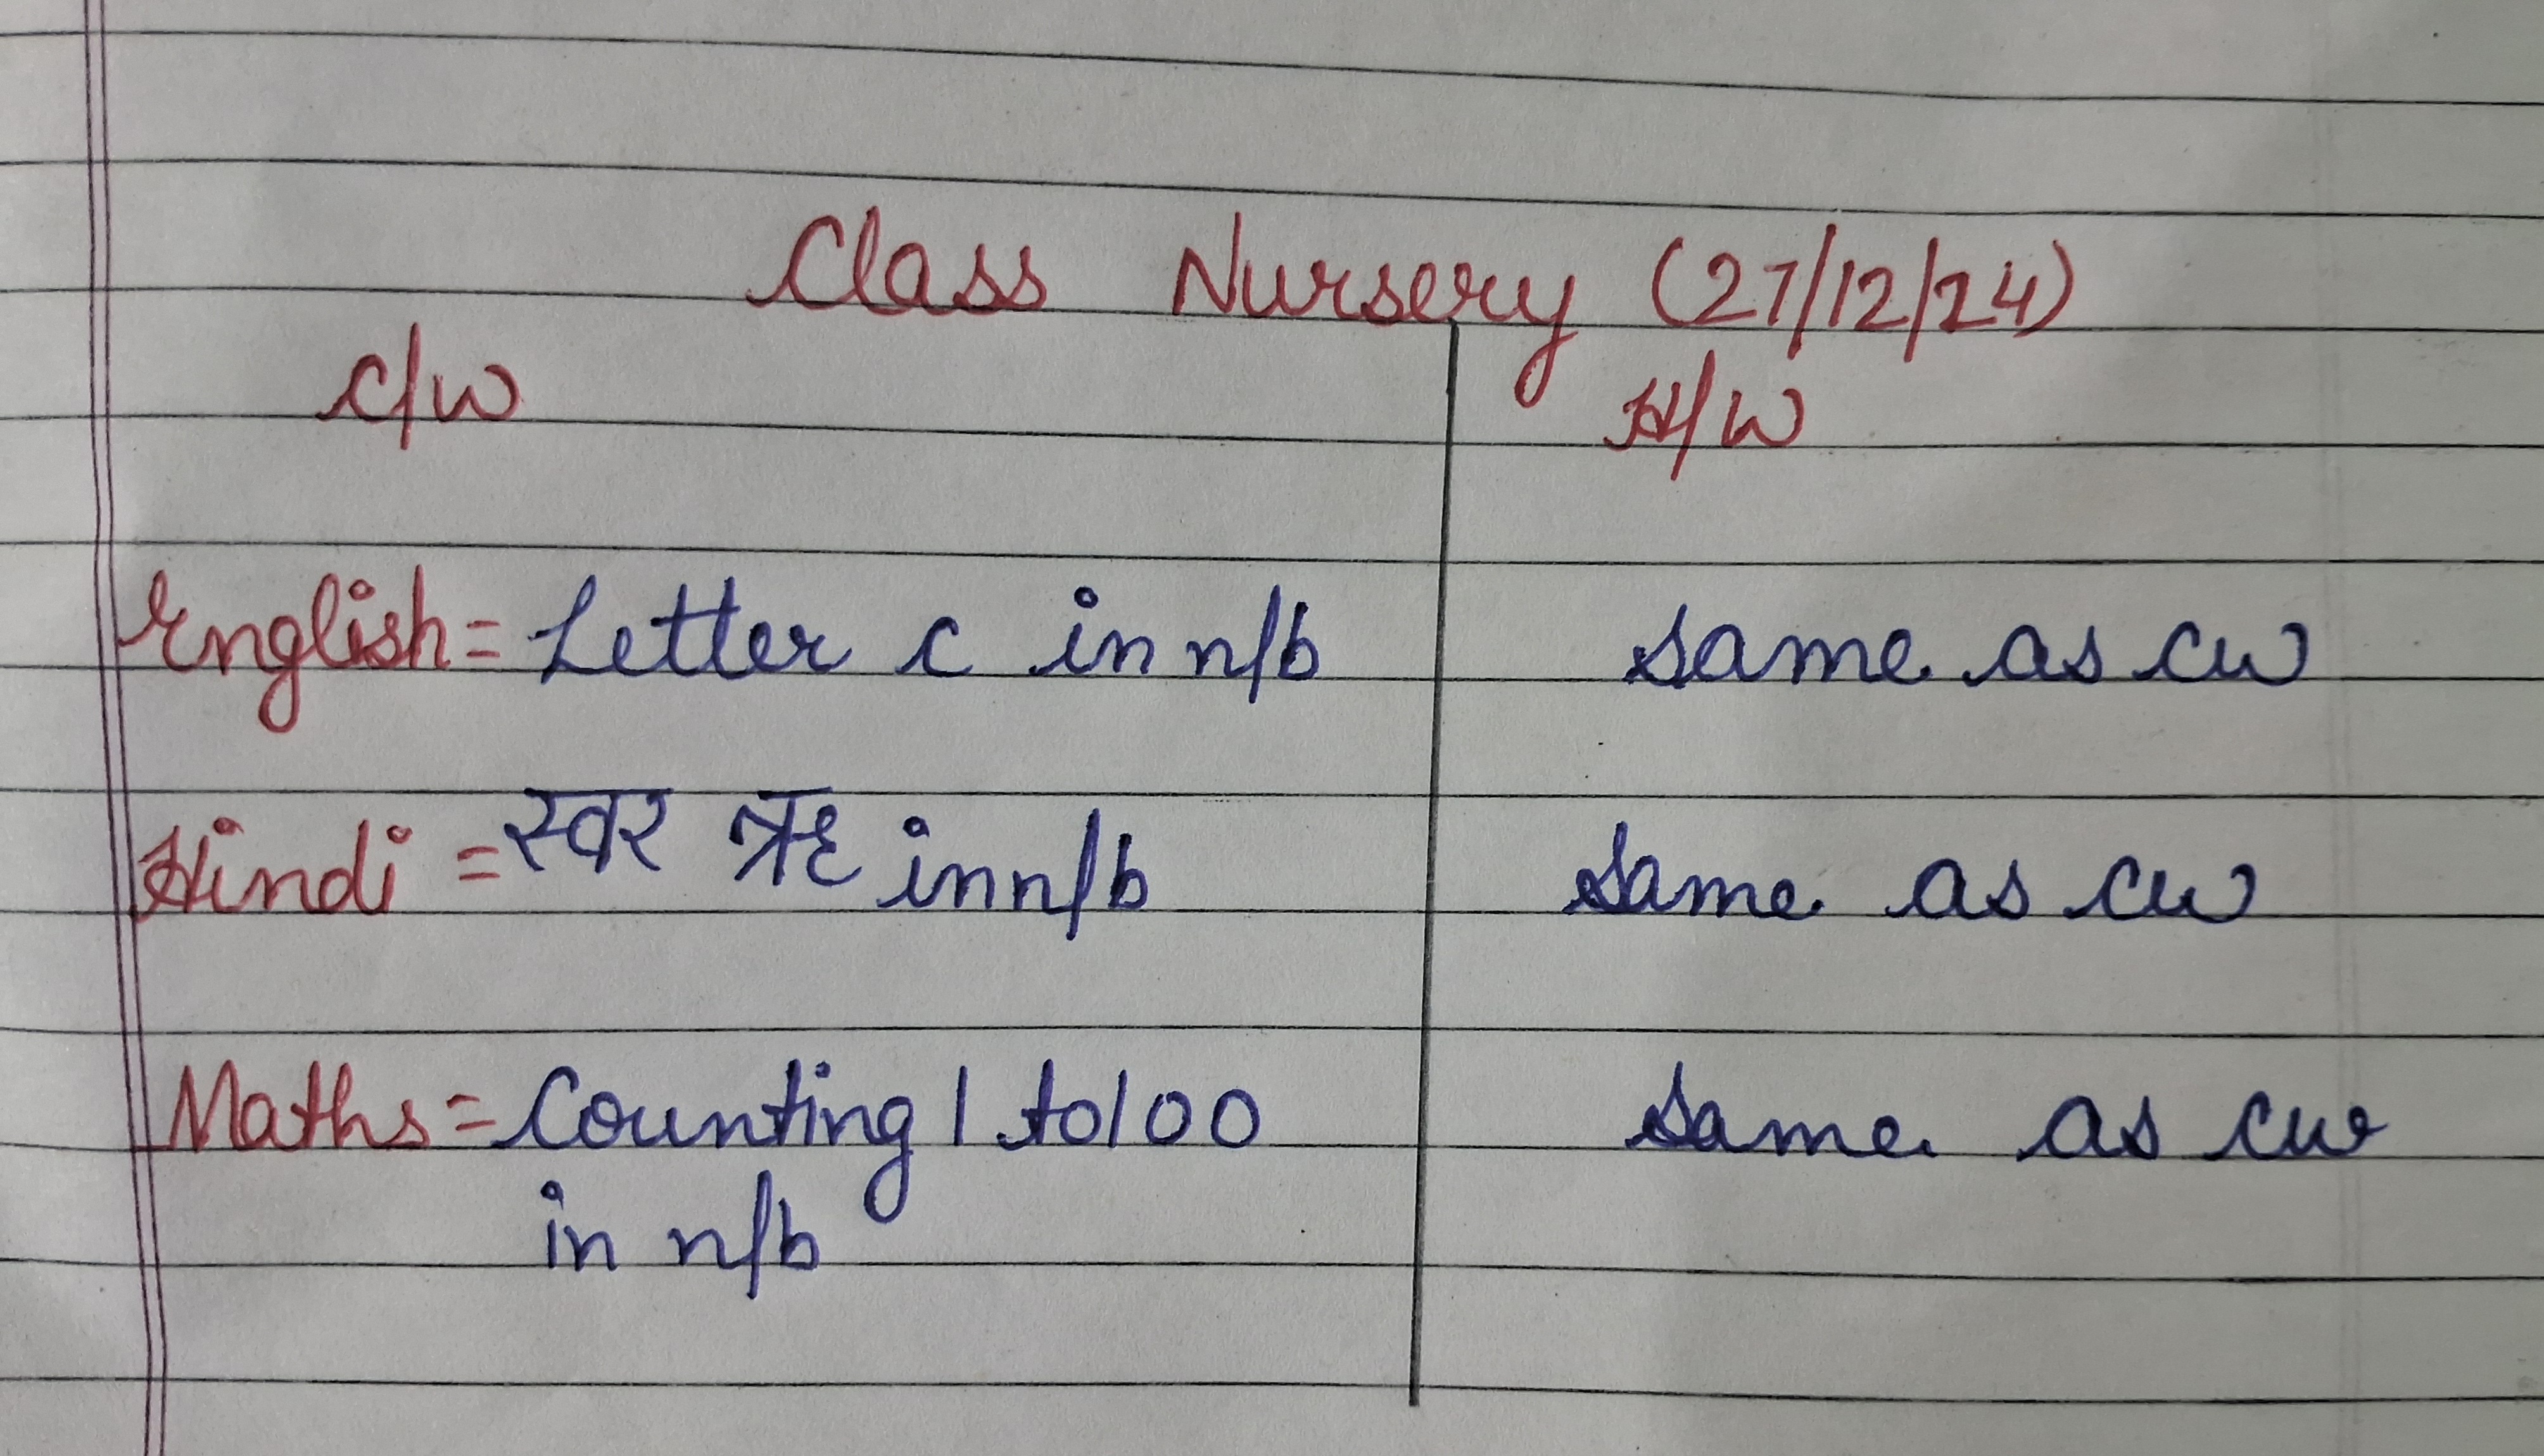 Class Nursery (27/12/24)
c/w H/w
English = Letter c in n/b same as cw
Hindi = स्वर ऋ in n/b same as cw
Maths = Counting 1 to 100 same as cw
in n/b